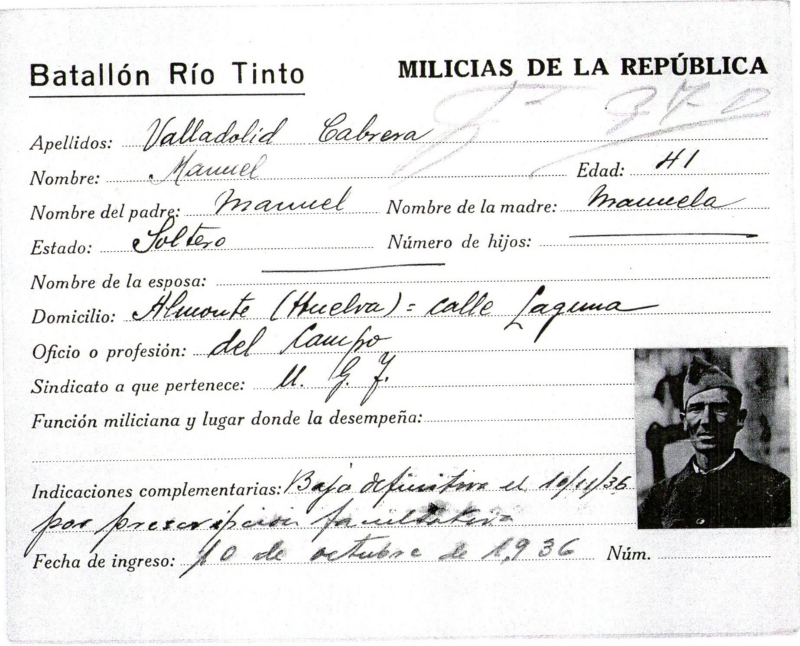 Batallón Río Tinto MILICIAS DE LA REPÚBLICA
Apellidos: Valladolid Cabrera
Nombre: Manuel Edad: 41
Nombre del padre: Manuel Nombre de la madre: Manuela
Estado: Soltero Número de hijos:
Nombre de la esposa:
Domicilio: Almonte (Huelva) = calle Laguna
Oficio o profesión: del Campo
Sindicato a que pertenece: U. G. T.
Función miliciana y lugar donde la desempeña:
Indicaciones complementarias: Baja definitiva el 10/11/36
por prescripción facultativa
Fecha de ingreso: 10 de octubre de 1,936 Núm.